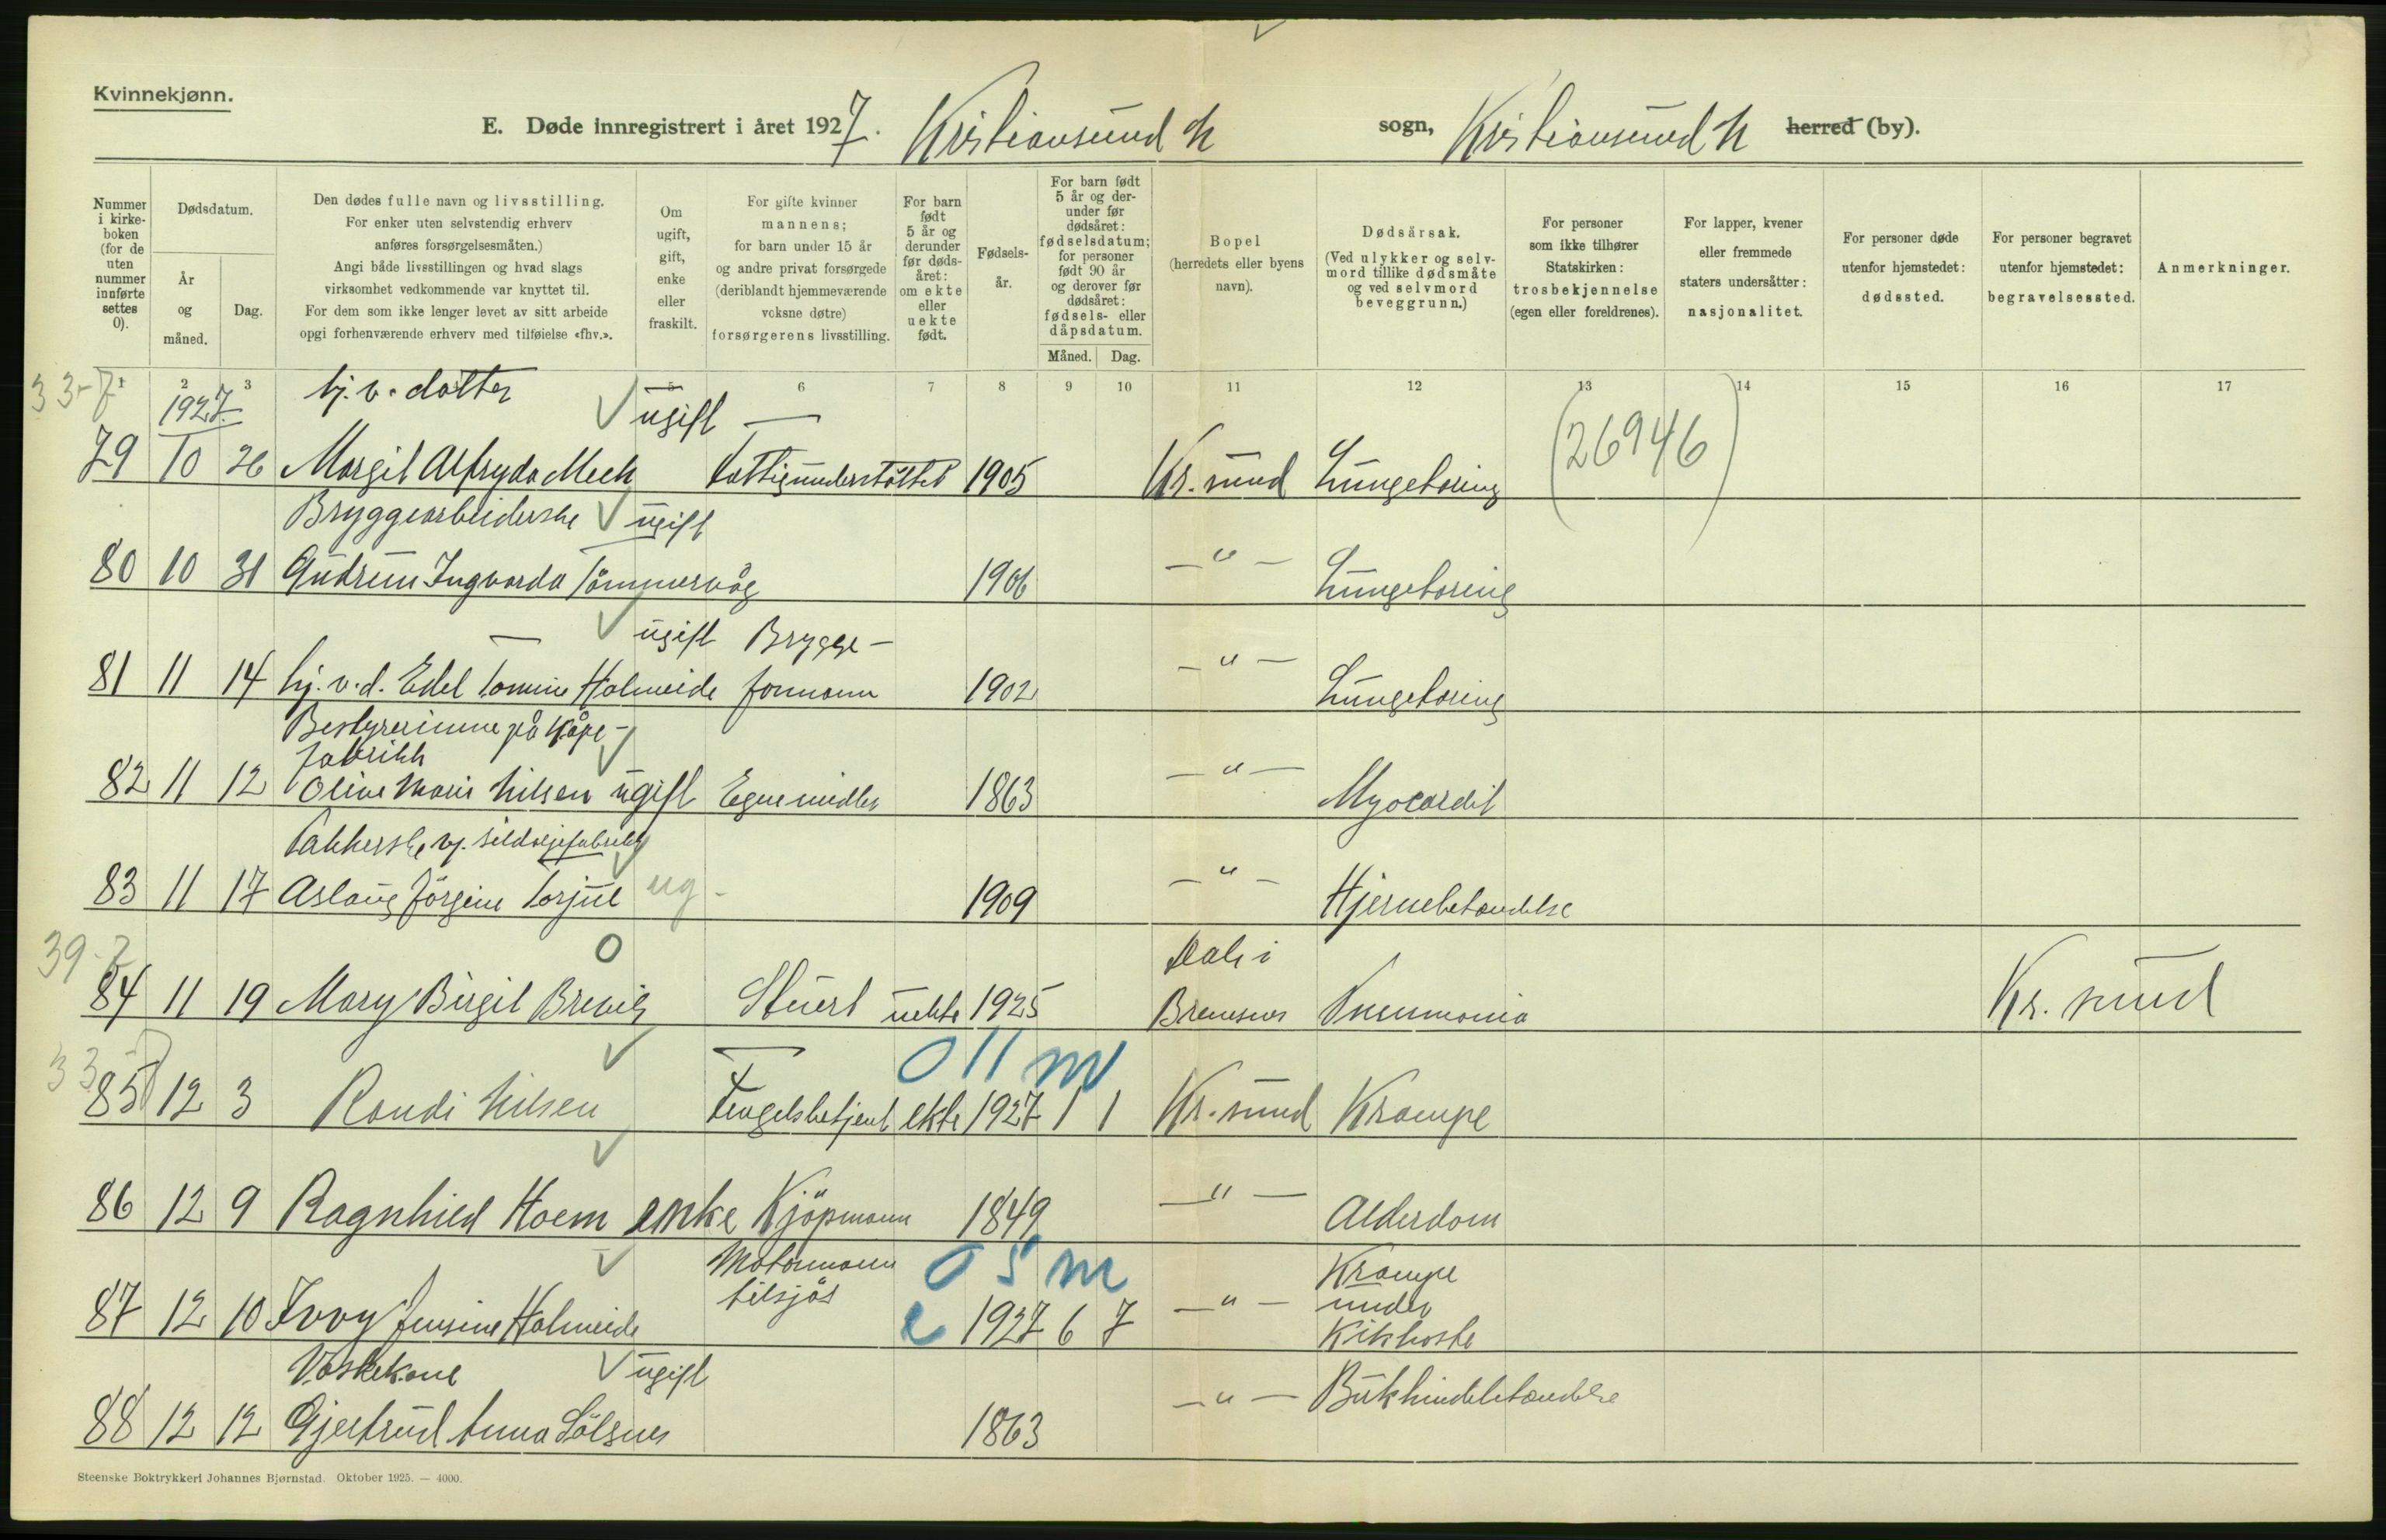 Kvinnekjønn.
E. Døde innregistrert i året 1927. Kristiansund N sogn, Kristiansund N herred (by).
Nummer i kirkeboken (for de uten nummer innførte settes 0).
Dødsdatum.
År og måned.
Dag.
Den dødes fulle navn og livsstilling.
For enker uten selvstendig erhverv
anføres forsørgelsesmåten.)
Angi både livsstillingen og hvad slags
virksomhet vedkommende var knyttet til.
For dem som ikke lenger levet av sitt arbeide
opgi forhenværende erhverv med tilføielse «fhv.».
Om ugift, gift, enke eller fraskilt.
For gifte kvinner
mannens;
for barn under 15 år
og andre privat forsørgede
(deriblandt hjemmeværende
voksne døtre)
forsørgerens livsstilling.
For barn født 5 år og derunder før dødsåret: om ekte eller uekte født.
Fødselsår.
For barn født 5 år og derunder før dødsåret: fødselsdatum; for personer født 90 år og derover før dødsåret: fødsels- eller dåpsdatum.
Måned. Dag.
Bopel
(herredets eller byens
navn).
Dødsårsak.
(Ved ulykker og selvmord tillike dødsmåte og ved selvmord beveggrunn.)
For personer
som ikke tilhører
Statskirken:
trosbekjennelse
(egen eller foreldrenes).
For lapper, kvener
eller fremmede
staters undersåtter:
nasjonalitet.
For personer døde
utenfor hjemstedet:
dødssted.
For personer begravet
utenfor hjemstedet:
begravelsessted.
Anmerkninger.
1 2 3 5 6 7 8 9 10 11 12 13 14 15 16 17
33-7 1927. hj.v. datter ugift —
79 10 26 Margit Alfryda Mech Fattigunderstøttet 1905 Kr.sund Lungetæring (26946)
Bryggearbeiderske ugift
80 10 31 Gudrun Ingvarda Tømmervåg 1906 — " — Lungetæring
— ugift Brygge-
81 11 14 hj.v.d. Edel Tomine Halmeide formann 1902 — " — Lungetæring
Bestyrerinne på Kåpe-
fabrikk
82 11 12 Oline Marie Nilsen ugift Egne midler 1863 — " — Myocardit
Pakkerske v. sildoljefabrikk
83 11 17 Aslaug Jörgine Torjul ug - 1909 — " — Hjernebetændelse
39-7 0 Dale i
84 11 19 Mary Birgit Brevig Stuert uekte 1925 Bremsnes Pneumonia Kr.sund
33-7 — 0 11 m
85 12 3 Randi Nilsen Fengelsbetjent ekte 1927 1 1 Kr.sund Krampe
86 12 9 Ragnhild Hoem enke Kjöpmann 1849 — " — Alderdom
Motormann 0 5 m Krampe
tilsjøs under
87 12 10 Ivvy Jensine Halmeide e 1927 6 7 — " — Kikhoste
Vaskekone ugift
88 12 12 Gjertrud Anna Sölsnes 1863 — " — Bukhindebetændelse
Steenske Boktrykkeri Johannes Bjørnstad. Oktober 1925. — 4000.